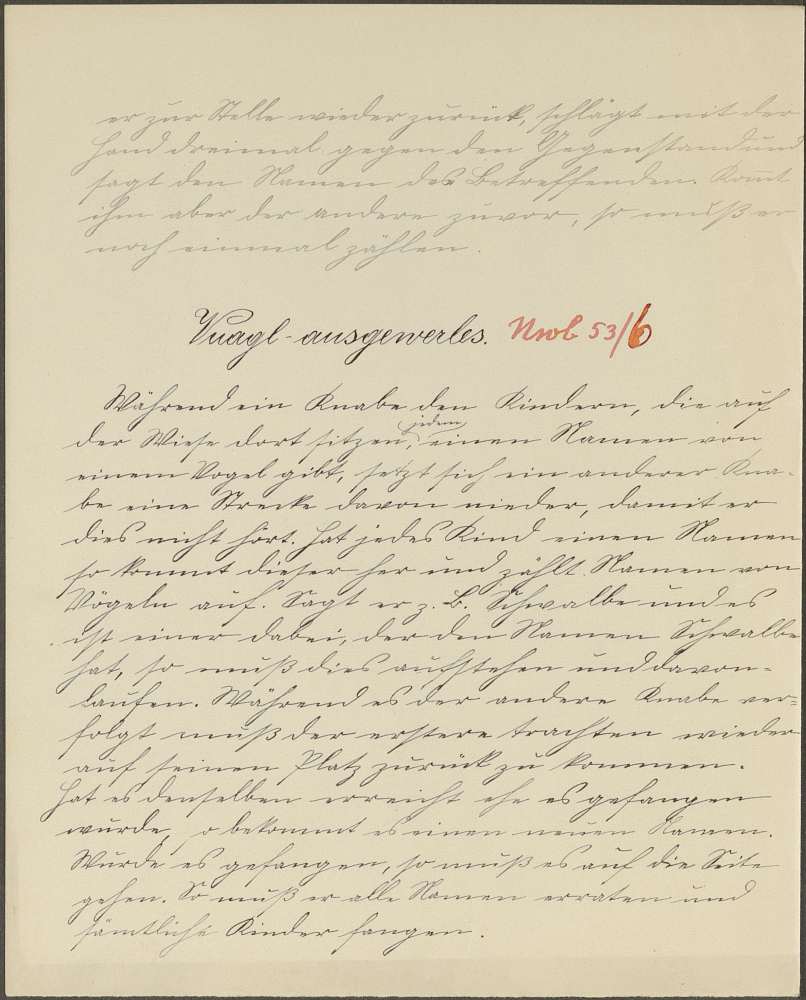 er zur Stelle wieder zurück, schlägt mit der
Hand dreimal gegen den Gegenstand und
sagt den Namen des Betreffenden. Kommt
ihm aber der andere zuvor, so muß er
noch einmal zählen.
Vuagl-ausgewerles. Nrob 53/6
Während ein Knabe den Kindern, die auf
der Wiese dort sitzen, (jedem) einen Namen von
einem Vogel gibt, setzt sich ein anderer Kna-
be eine Strecke davon nieder, damit er
dies nicht hört. Hat jedes Kind einen Namen
so kommt dieser her und zählt Namen von
Vögeln auf. Sagt er z. B. Schwalbe und es
ist einer dabei, der den Namen Schwalbe
hat, so muß dies aufstehen und davon-
laufen. Während es der andere Knabe ver-
folgt muß der erstere trachten wieder
auf seinen Platz zurück zu kommen.
Hat es denselben erreicht ehe es gefangen
wurde, so bekommt es einen neuen Namen.
Wurde es gefangen, so muß es auf die Seite
gehen. So muß er alle Namen erraten und
sämtliche Kinder fangen.